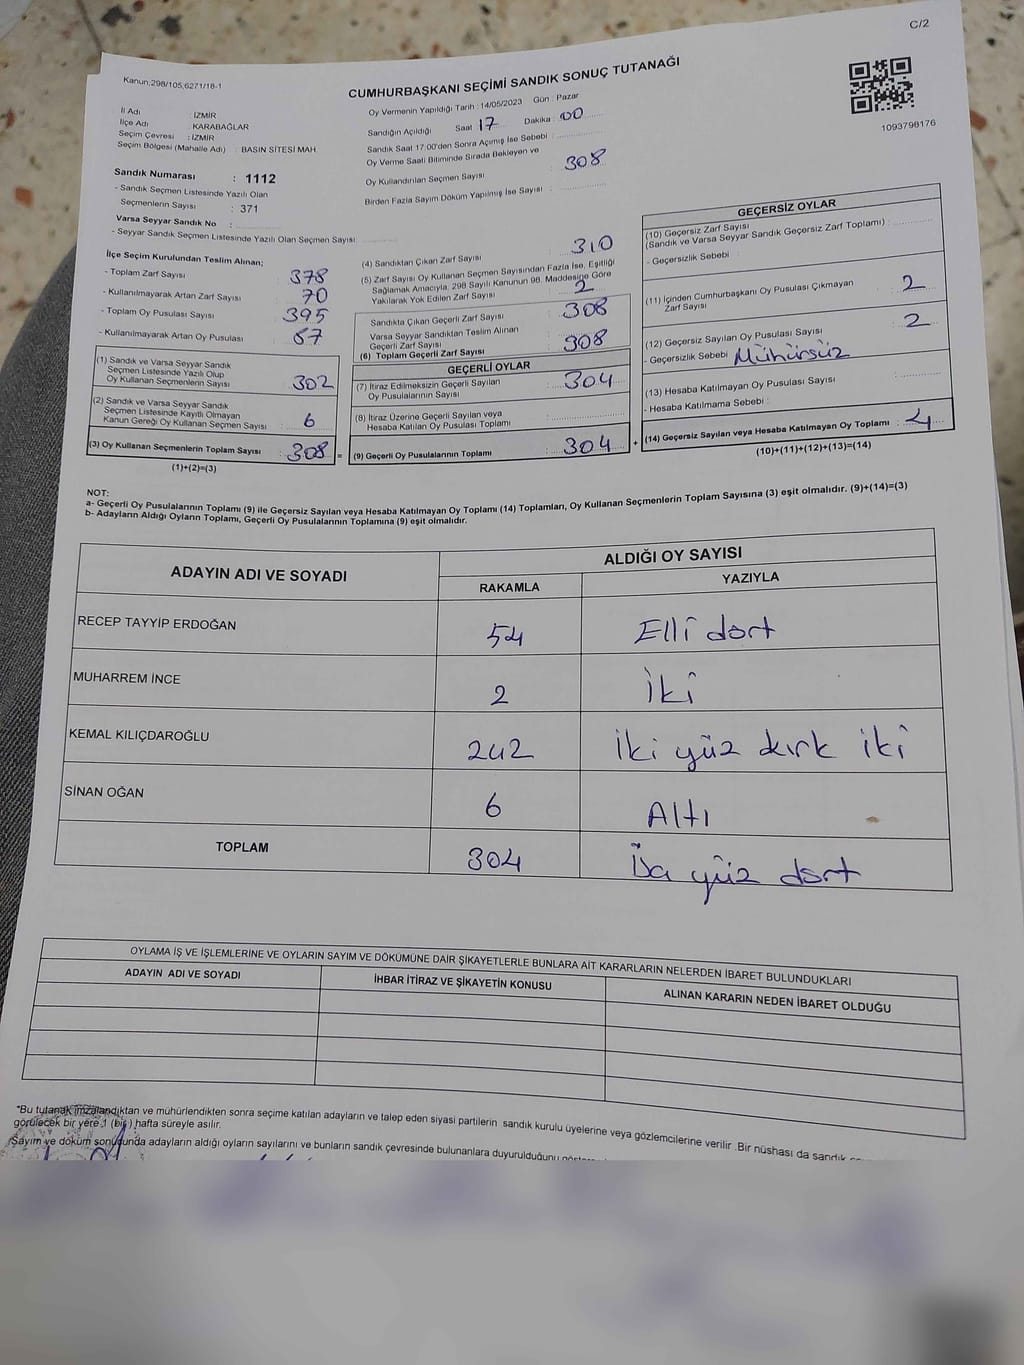 C/2
Kanun;298/105,6271/18-1
CUMHURBAŞKANI SEÇİMİ SANDIK SONUÇ TUTANAĞI
1093798176
İl Adı : İZMİR
İlçe Adı : KARABAĞLAR
Seçim Çevresi : İZMİR
Seçim Bölgesi (Mahalle Adı) : BASIN SİTESİ MAH.
Sandık Numarası : 1112
- Sandık Seçmen Listesinde Yazılı Olan
Seçmenlerin Sayısı : 371
Varsa Seyyar Sandık No :
- Seyyar Sandık Seçmen Listesinde Yazılı Olan Seçmen Sayısı
Oy Vermenin Yapıldığı Tarih : 14/05/2023 Gün : Pazar
Sandığın Açıldığı Saat 17 Dakika : 00
Sandık Saat 17:00'den Sonra Açımış İse Sebebi :
Oy Verme Saati Bitiminde Sırada Bekleyen ve
Oy Kullandırılan Seçmen Sayısı : 308
Birden Fazla Sayım Döküm Yapılmış İse Sayısı :
İlçe Seçim Kurulundan Teslim Alınan;
- Toplam Zarf Sayısı : 378
- Kullanılmayarak Artan Zarf Sayısı : 70
- Toplam Oy Pusulası Sayısı : 395
- Kullanılmayarak Artan Oy Pusulası : 87
(1) Sandık ve Varsa Seyyar Sandık
Seçmen Listesinde Yazılı Olup
Oy Kullanan Seçmenlerin Sayısı : 302
(2) Sandık ve Varsa Seyyar Sandık
Seçmen Listesinde Kayıtlı Olmayan
Kanun Gereği Oy Kullanan Seçmen Sayısı : 6
(3) Oy Kullanan Seçmenlerin Toplam Sayısı : 308
(1)+(2)=(3)
(4) Sandıktan Çıkan Zarf Sayısı : 310
(5) Zarf Sayısı Oy Kullanan Seçmen Sayısından Fazla İse, Eşitliği
Sağlamak Amacıyla, 298 Sayılı Kanunun 98. Maddesine Göre
Yakılarak Yok Edilen Zarf Sayısı : 2
Sandıkta Çıkan Geçerli Zarf Sayısı : 308
Varsa Seyyar Sandıktan Teslim Alınan
Geçerli Zarf Sayısı
(6) Toplam Geçerli Zarf Sayısı : 308
GEÇERLİ OYLAR
(7) İtiraz Edilmeksizin Geçerli Sayılan
Oy Pusulalarının Sayısı : 304
(8) İtiraz Üzerine Geçerli Sayılan veya
Hesaba Katılan Oy Pusulası Toplamı :
= (9) Geçerli Oy Pusulalarının Toplamı : 304 +
GEÇERSİZ OYLAR
(10) Geçersiz Zarf Sayısı
(Sandık ve Varsa Seyyar Sandık Geçersiz Zarf Toplamı) :
- Geçersizlik Sebebi :
(11) İçinden Cumhurbaşkanı Oy Pusulası Çıkmayan
Zarf Sayısı : 2
(12) Geçersiz Sayılan Oy Pusulası Sayısı : 2
- Geçersizlik Sebebi : Mühürsüz
(13) Hesaba Katılmayan Oy Pusulası Sayısı :
- Hesaba Katılmama Sebebi :
(14) Geçersiz Sayılan veya Hesaba Katılmayan Oy Toplamı : 4
(10)+(11)+(12)+(13)=(14)
NOT:
a- Geçerli Oy Pusulalarının Toplamı (9) ile Geçersiz Sayılan veya Hesaba Katılmayan Oy Toplamı (14) Toplamları, Oy Kullanan Seçmenlerin Toplam Sayısına (3) eşit olmalıdır. (9)+(14)=(3)
b- Adayların Aldığı Oyların Toplamı, Geçerli Oy Pusulalarının Toplamına (9) eşit olmalıdır.
ADAYIN ADI VE SOYADI
ALDIĞI OY SAYISI
RAKAMLA YAZIYLA
RECEP TAYYİP ERDOĞAN 54 Elli dört
MUHARREM İNCE 2 İki
KEMAL KILIÇDAROĞLU 242 İki yüz kırk iki
SİNAN OĞAN 6 Altı
TOPLAM 304 yüz dört
OYLAMA İŞ VE İŞLEMLERİNE VE OYLARIN SAYIM VE DÖKÜMÜNE DAİR ŞİKAYETLERLE BUNLARA AİT KARARLARIN NELERDEN İBARET BULUNDUKLARI
ADAYIN ADI VE SOYADI İHBAR İTİRAZ VE ŞİKAYETİN KONUSU ALINAN KARARIN NEDEN İBARET OLDUĞU
*Bu tutanak imzalandıktan ve mühürlendikten sonra seçime katılan adayların ve talep eden siyasi partilerin sandık kurulu üyelerine veya gözlemcilerine verilir .Bir nüshası da sandık
görülecek bir yere 1 (bir) hafta süreyle asılır.
Sayım ve döküm sonucunda adayların aldığı oyların sayılarını ve bunların sandık çevresinde bulunanlara duyurulduğunu